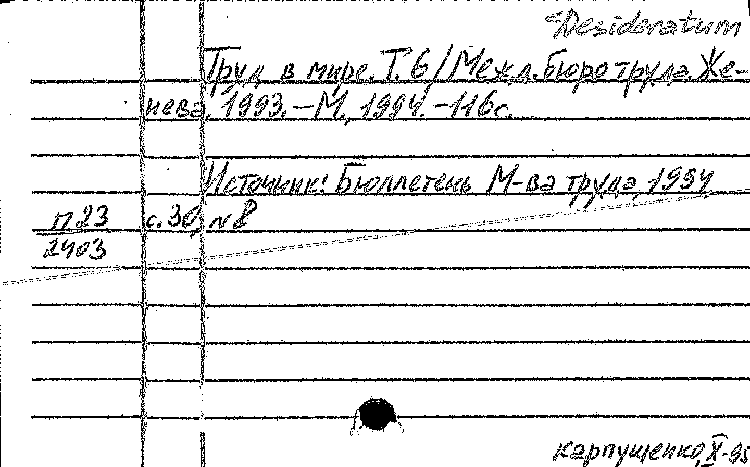 Desideratum
Труд в мире. Т. 6 / Межд. бюро труда. Же-
нева, 1993. – М., 1994. – 116 с.
Источник: Бюллетень М-ва труда, 1994,
с. 30, № 8
п 23
2403
Карпущенко, X-95